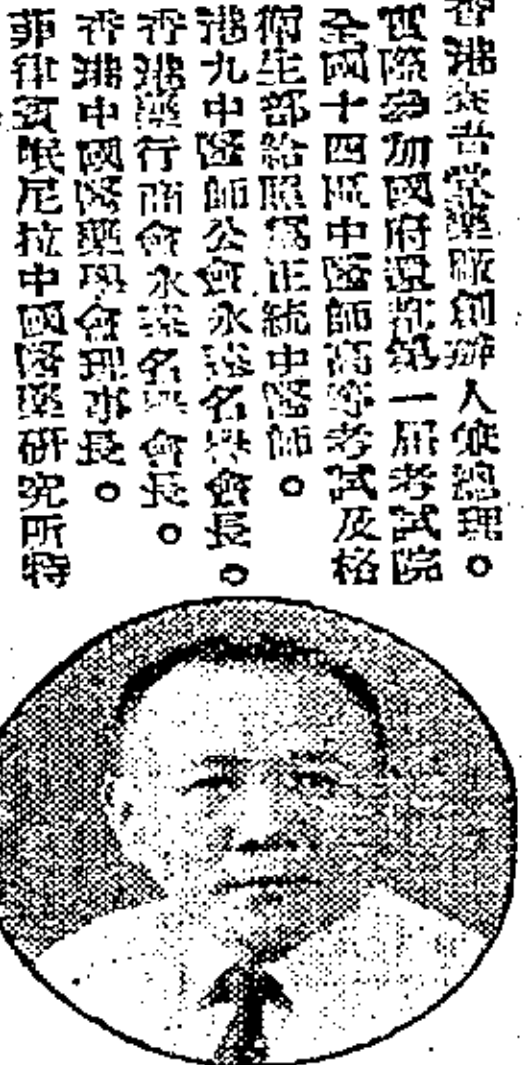 香港表昔堂藥廠創辦人兼總理。
實際參加國府還都第一屆考試院
全國十四區中醫師高等考試及格
衛生部給照為正統中醫師。
港九中醫師公會永遠名譽會長。
香港藥行商會永遠名譽會長。
香港中國醫藥學會理事長。
菲律賓岷尼拉中國醫藥研究所特